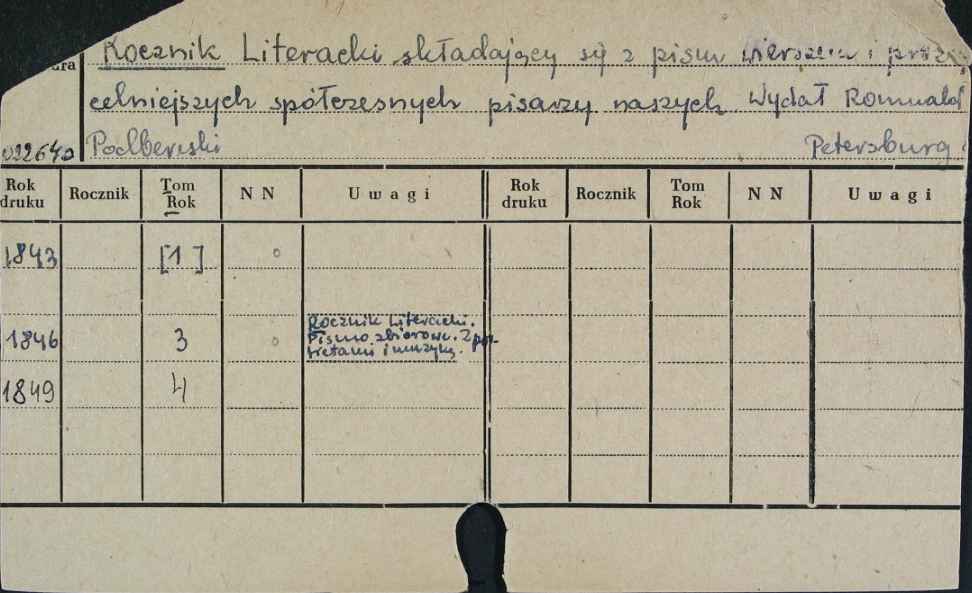 Rocznik Literacki składający się z pism wierszem i prozą
celniejszych spółczesnych pisarzy naszych Wydał Romuald
022640 Podbereski Petersburg
Rok druku Rocznik Tom Rok N N Uwagi Rok druku Rocznik Tom Rok N N Uwagi
1843 [1] o
Rocznik Literacki.
1846 3 o Pismo zbiorowe. Z por-
tretami i muzyką.
1849 4